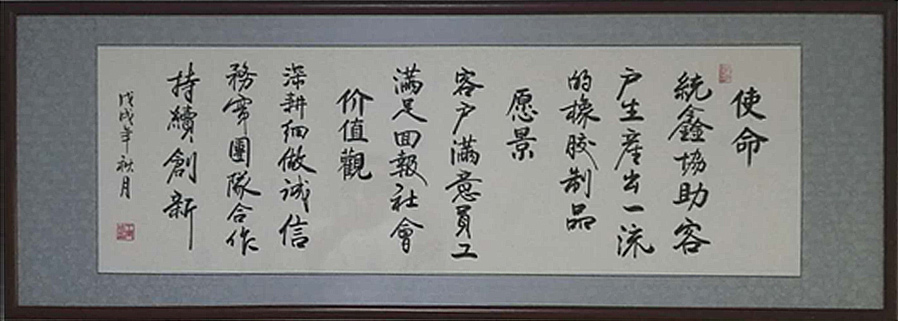 使命
統鑫協助客
户生産出一流
的橡胶制品
愿景
客户滿意員工
滿足回報社會
价值觀
深耕细做诚信
務實團隊合作
持續創新
戊戌年秋月